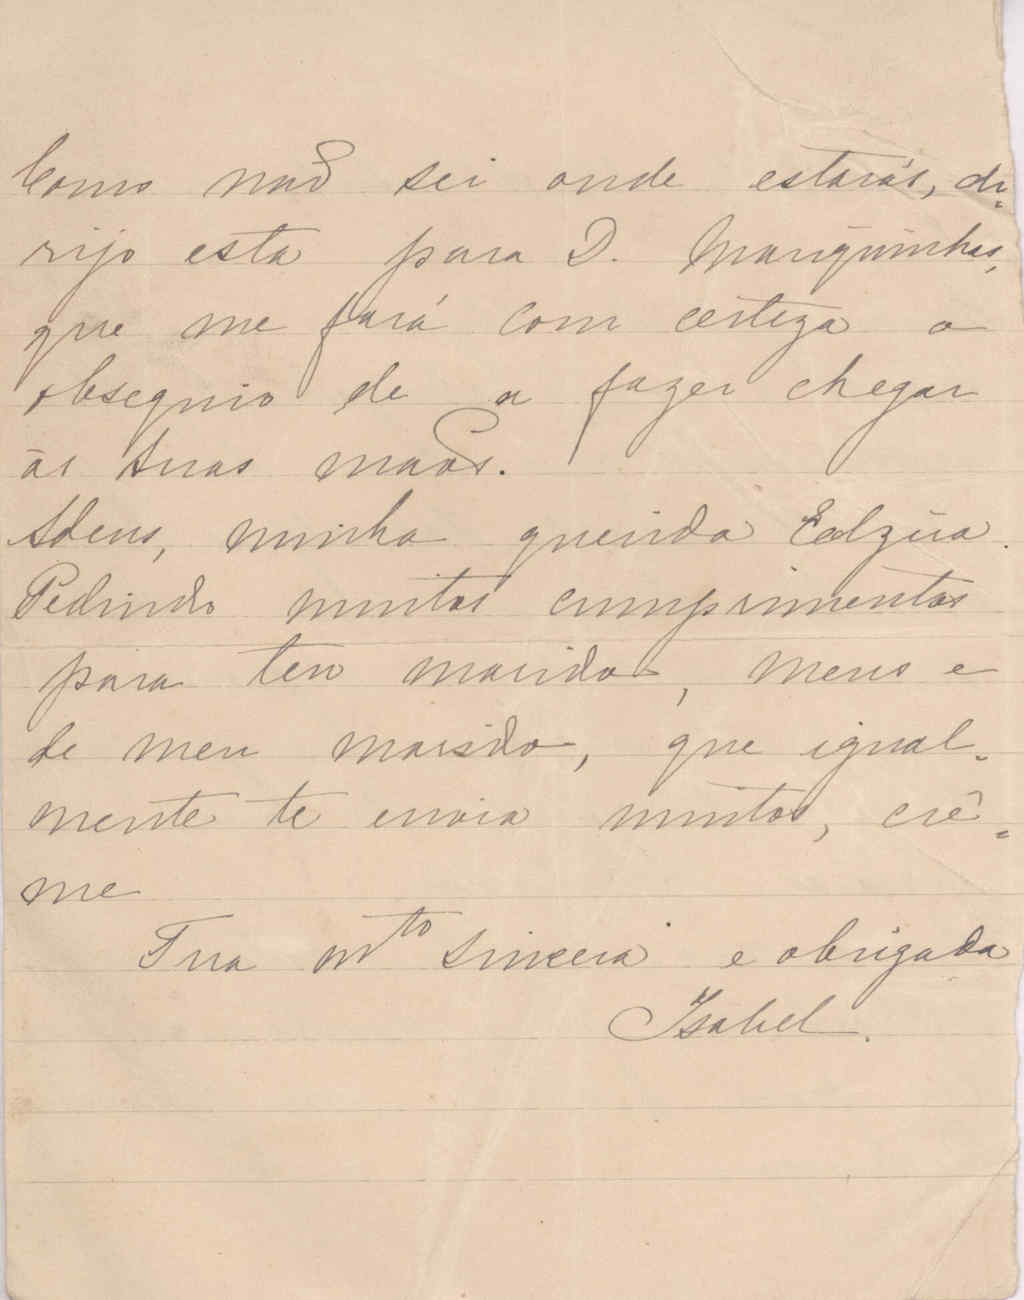 Como não sei onde estarás, di=
rijo esta para D. Mariquinhas,
que me fará com certeza o
obsequio de a fazer chegar
ás tuas mãos.
Adeus, minha querida Edlzira.
Pedindo muitos cumprimentos
para teu marido, meus e
de meu marido, que igual-
mente te envia muitos, crê=
me
Tua mto sincera e obrigada
Isabel.